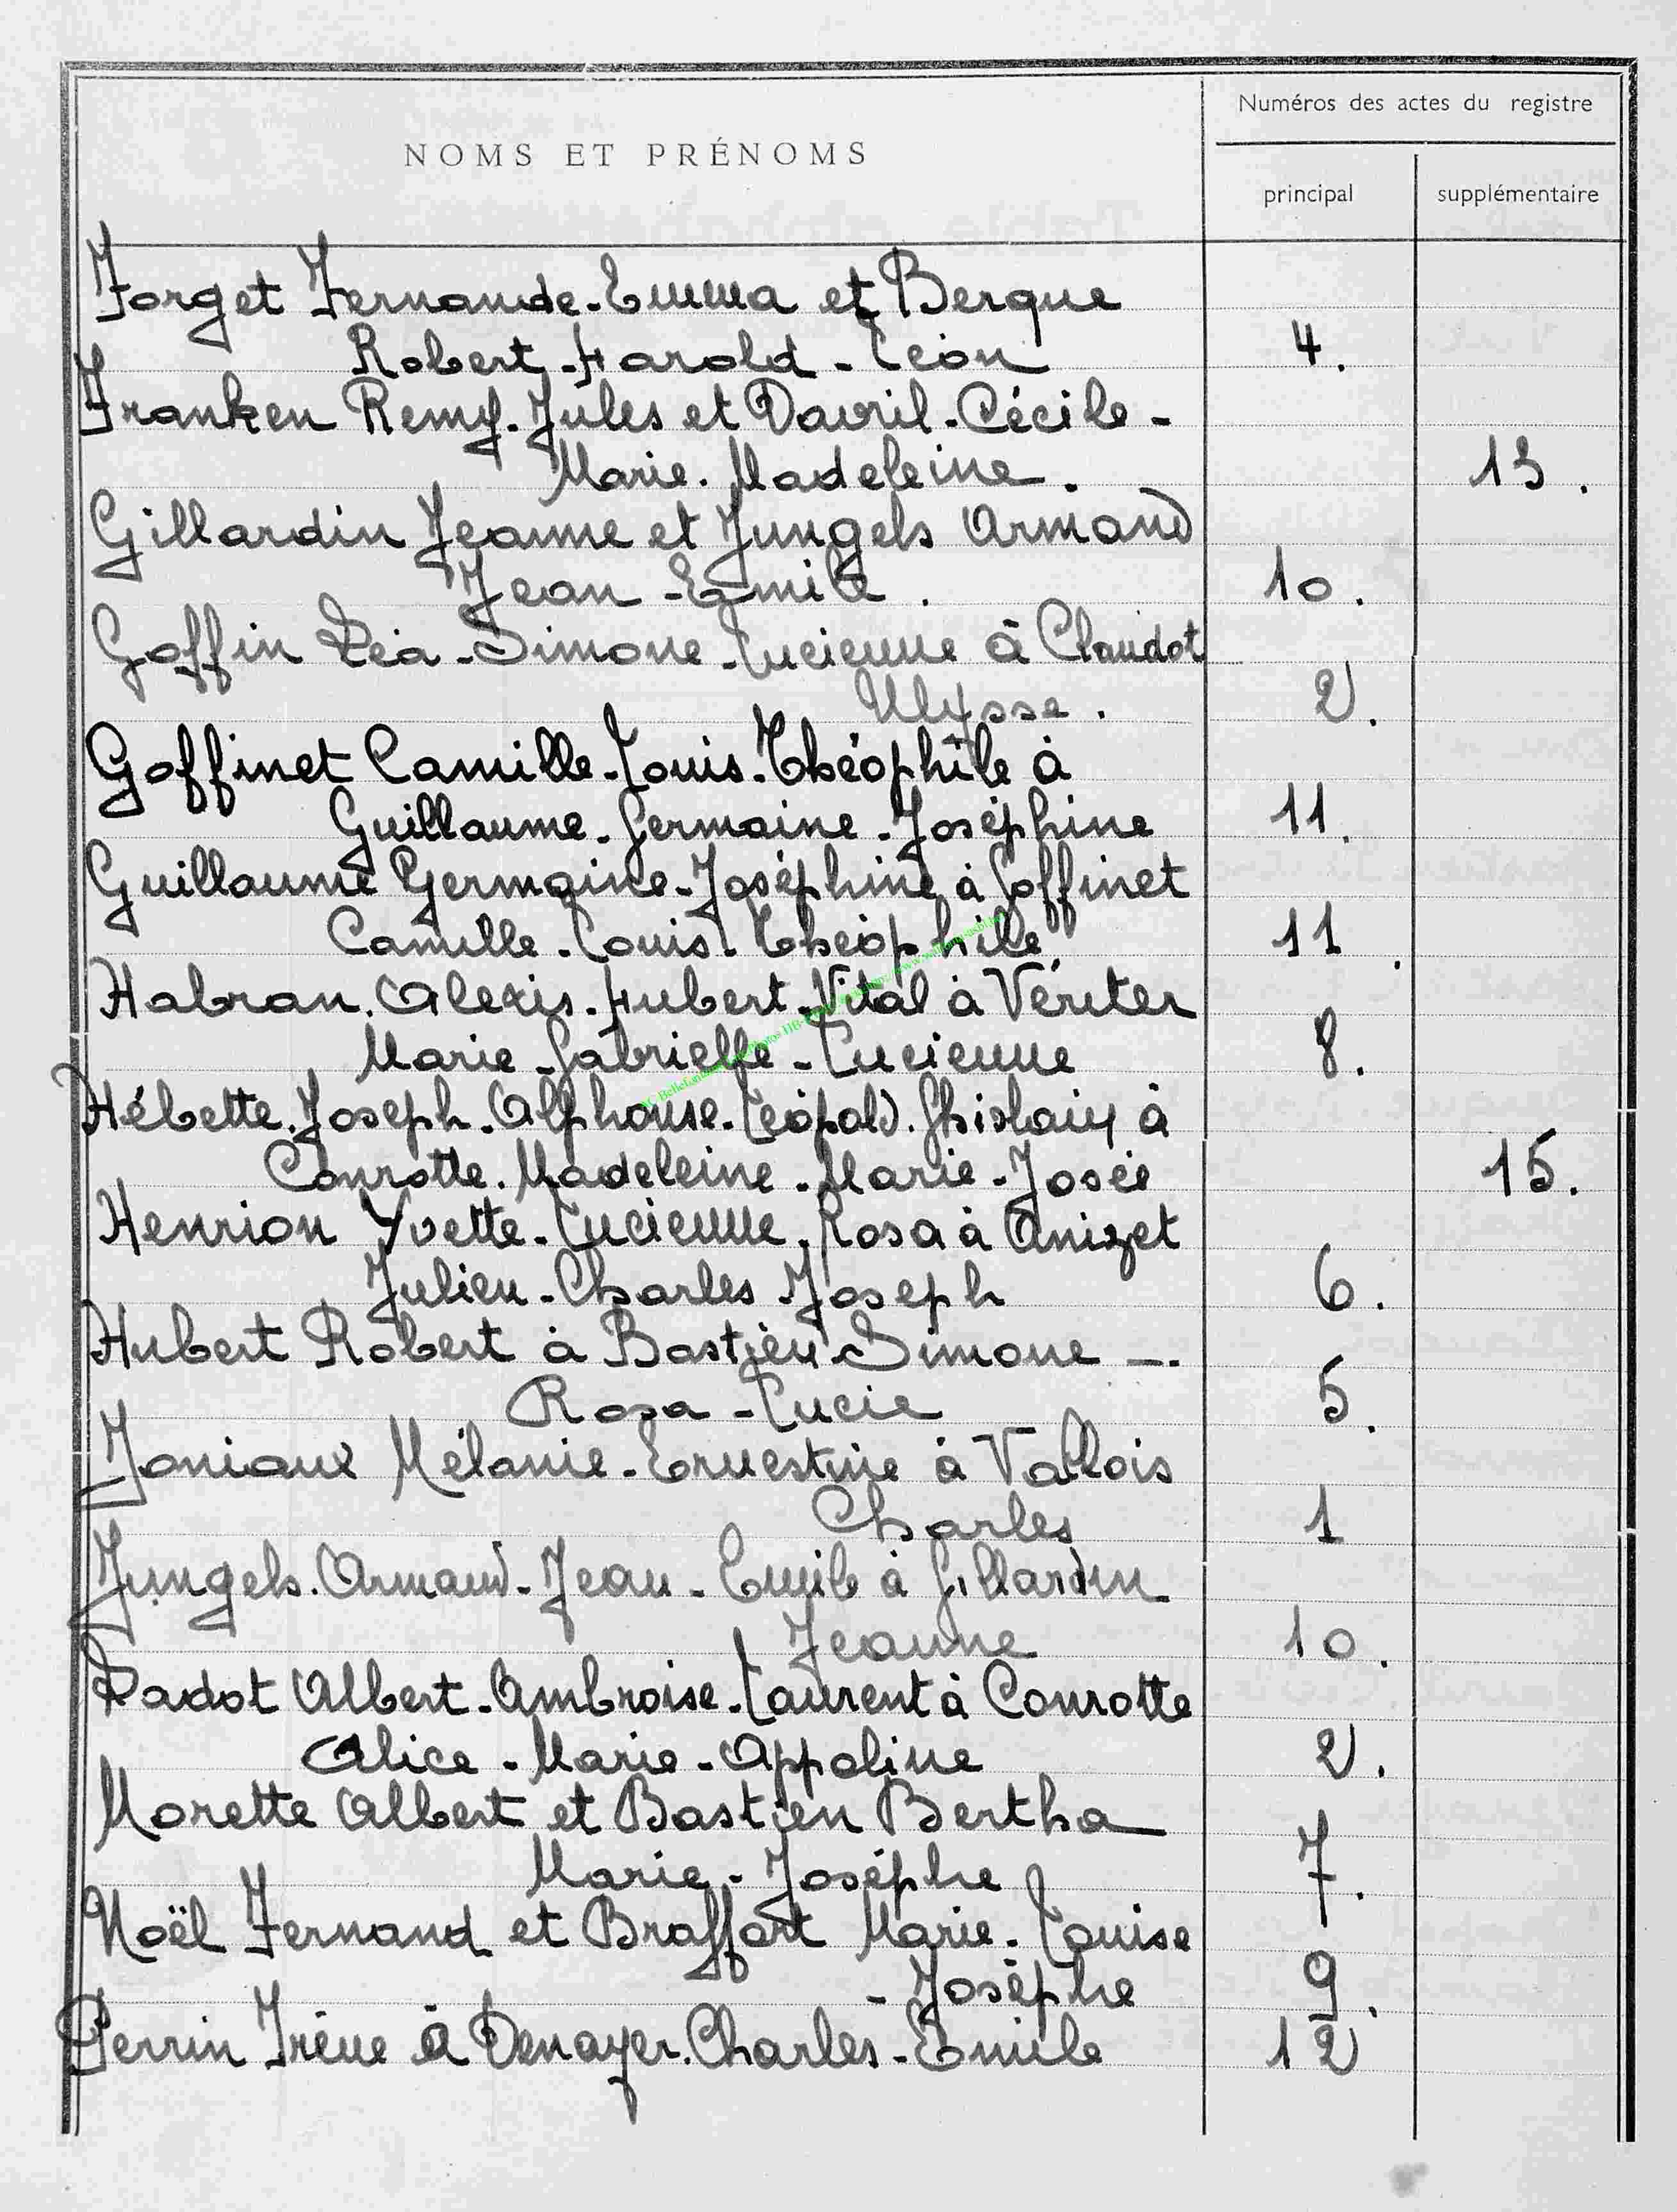 Numéros des actes du registre
NOMS ET PRÉNOMS
principal
supplémentaire
Forget Fernande-Emma et Berque
Robert-Harold-Léon 4.
Franken Remy-Jules et Davril-Cécile-
Marie-Madeleine. 13.
Gillardin Jeanne et Jungels Armand
Jean-Emile. 10.
Goffin Léa-Simone-Lucienne à Claudot
Ulysse. 2.
Goffinet Camille-Louis-Théophile à
Guillaume-Germaine-Joséphine 11.
Guillaume Germaine-Joséphine à Goffinet
Camille-Louis-Théophile. 11.
Habran Alexis-Hubert-Vital à Vériter
Marie-Gabrielle-Lucienne 8.
Hébette Joseph-Alphonse-Léopold-Ghislain à
Conrotte Madeleine-Marie-Josée 15.
Henrion Yvette-Lucienne-Rosa à Anizet
Julien-Charles-Joseph 6.
Hubert Robert à Bastien Simone -.
Rosa-Lucie 5.
Joniaux Mélanie-Ernestine à Vallois
Charles 1
Jungels-Armand-Jean-Emile à Gillardin
Jeanne 10.
Ladot Albert-Ambroise-Laurent à Conrotte
Alice-Marie-Appoline 2.
Morette Albert et Bastien Bertha
Marie-Josèphe 7.
Noël Fernand et Braffort Marie-Louise
-Josèphe 9.
Perrin Irène à Denayer Charles-Emile 12